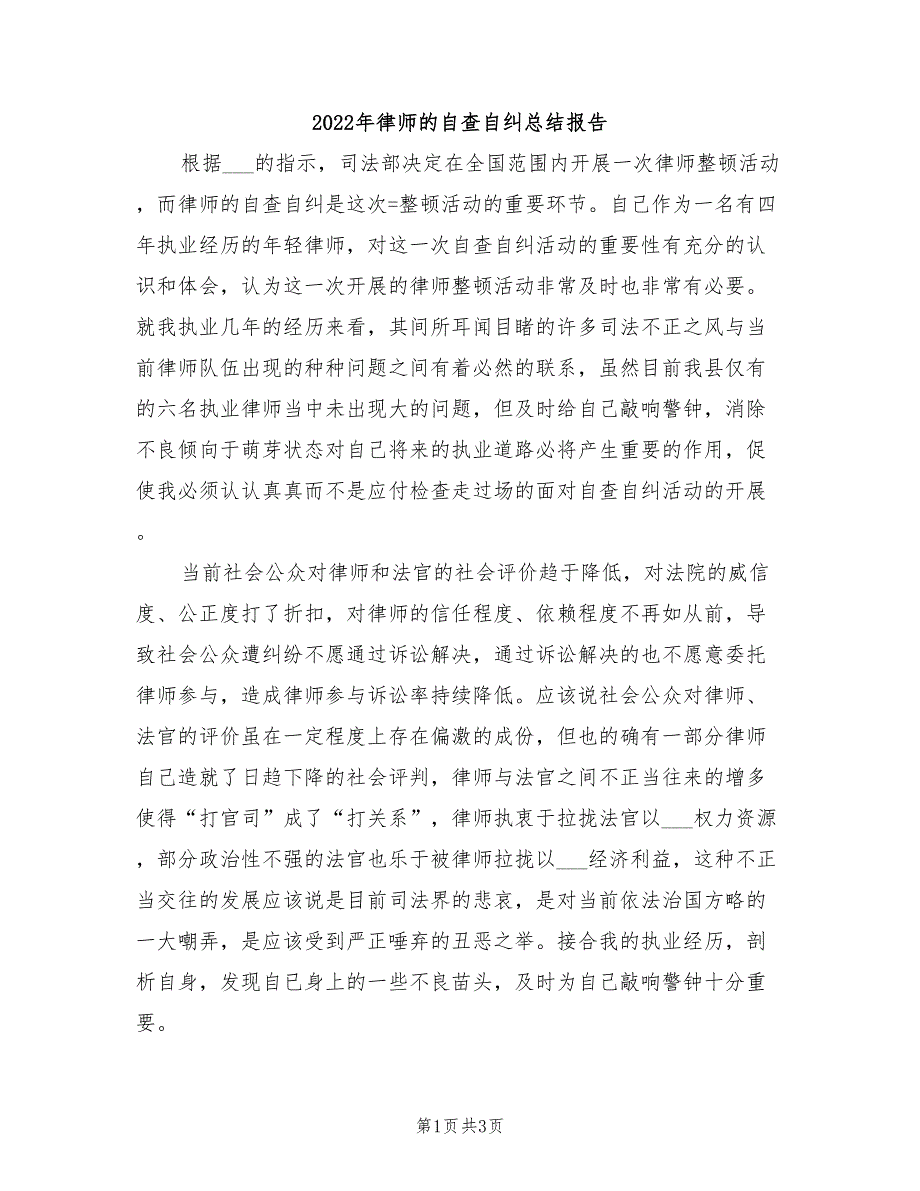 2022年律师的自查自纠总结报告
根据___的指示，司法部决定在全国范围内开展一次律师整顿活动
，而律师的自查自纠是这次=整顿活动的重要环节。自己作为一名有四
年执业经历的年轻律师，对这一次自查自纠活动的重要性有充分的认
识和体会，认为这一次开展的律师整顿活动非常及时也非常有必要。
就我执业几年的经历来看，其间所耳闻目睹的许多司法不正之风与当
前律师队伍出现的种种问题之间有着必然的联系，虽然目前我县仅有
的六名执业律师当中未出现大的问题，但及时给自己敲响警钟，消除
不良倾向于萌芽状态对自己将来的执业道路必将产生重要的作用，促
使我必须认认真真而不是应付检查走过场的面对自查自纠活动的开展
。
当前社会公众对律师和法官的社会评价趋于降低，对法院的威信
度、公正度打了折扣，对律师的信任程度、依赖程度不再如从前，导
致社会公众遭纠纷不愿通过诉讼解决，通过诉讼解决的也不愿意委托
律师参与，造成律师参与诉讼率持续降低。应该说社会公众对律师、
法官的评价虽在一定程度上存在偏激的成份，但也的确有一部分律师
自己造就了日趋下降的社会评判，律师与法官之间不正当往来的增多
使得“打官司”成了“打关系”，律师执衷于拉拢法官以___权力资源
，部分政治性不强的法官也乐于被律师拉拢以___经济利益，这种不正
当交往的发展应该说是目前司法界的悲哀，是对当前依法治国方略的
一大嘲弄，是应该受到严正唾弃的丑恶之举。接合我的执业经历，剖
析自身，发现自已身上的一些不良苗头，及时为自己敲响警钟十分重
要。
第1页 共3页